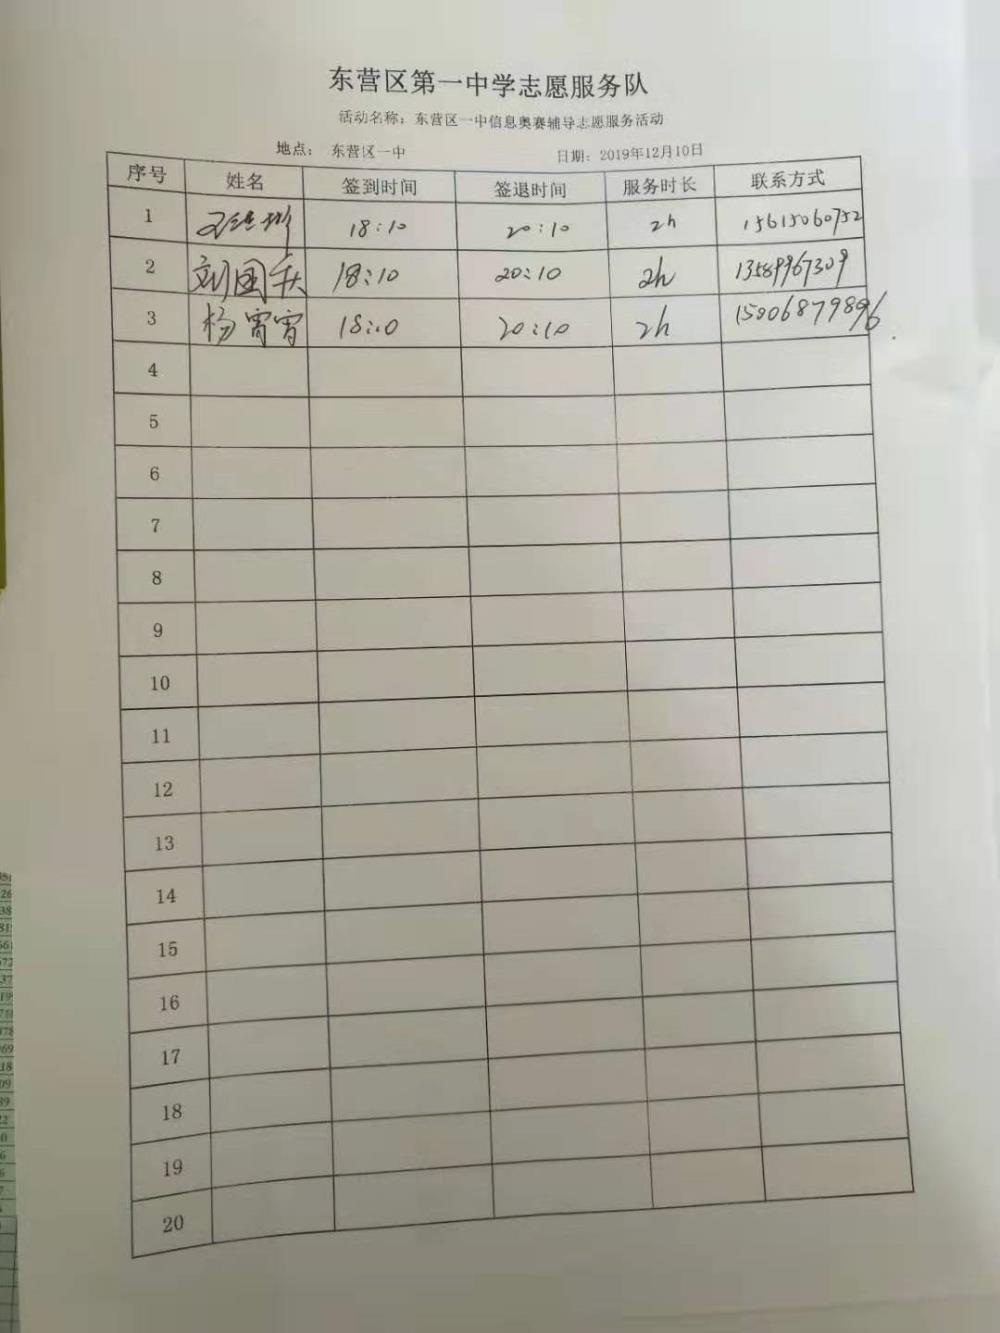 东营区第一中学志愿服务队
活动名称：东营区一中信息奥赛辅导志愿服务活动
地点： 东营区一中 日期：2019年12月10日
序号 姓名 签到时间 签退时间 服务时长 联系方式
1 18:10 20:10 2h 15615060752
2 刘国秋 18:10 20:10 2h 13589967309
3 杨霄霄 18:10 20:10 2h 15006879896
4
5
6
7
8
9
10
11
12
13
14
15
16
17
18
19
20